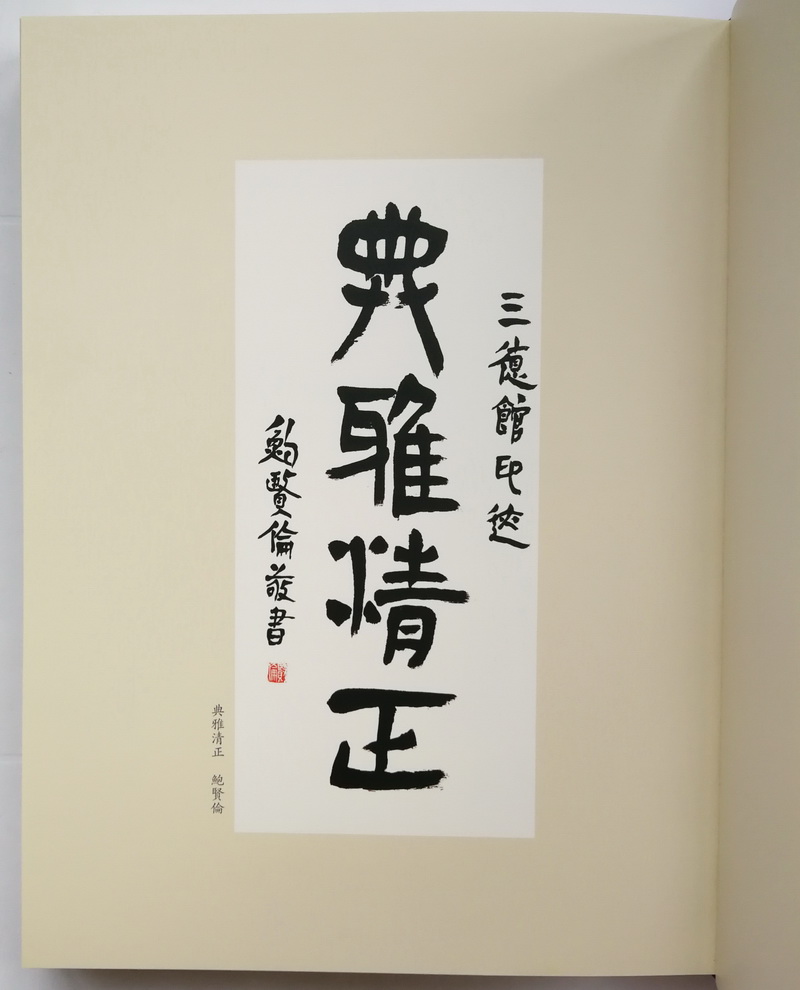 三德館印迹
典雅清正
鮑賢倫敬書
典雅清正 鮑賢倫